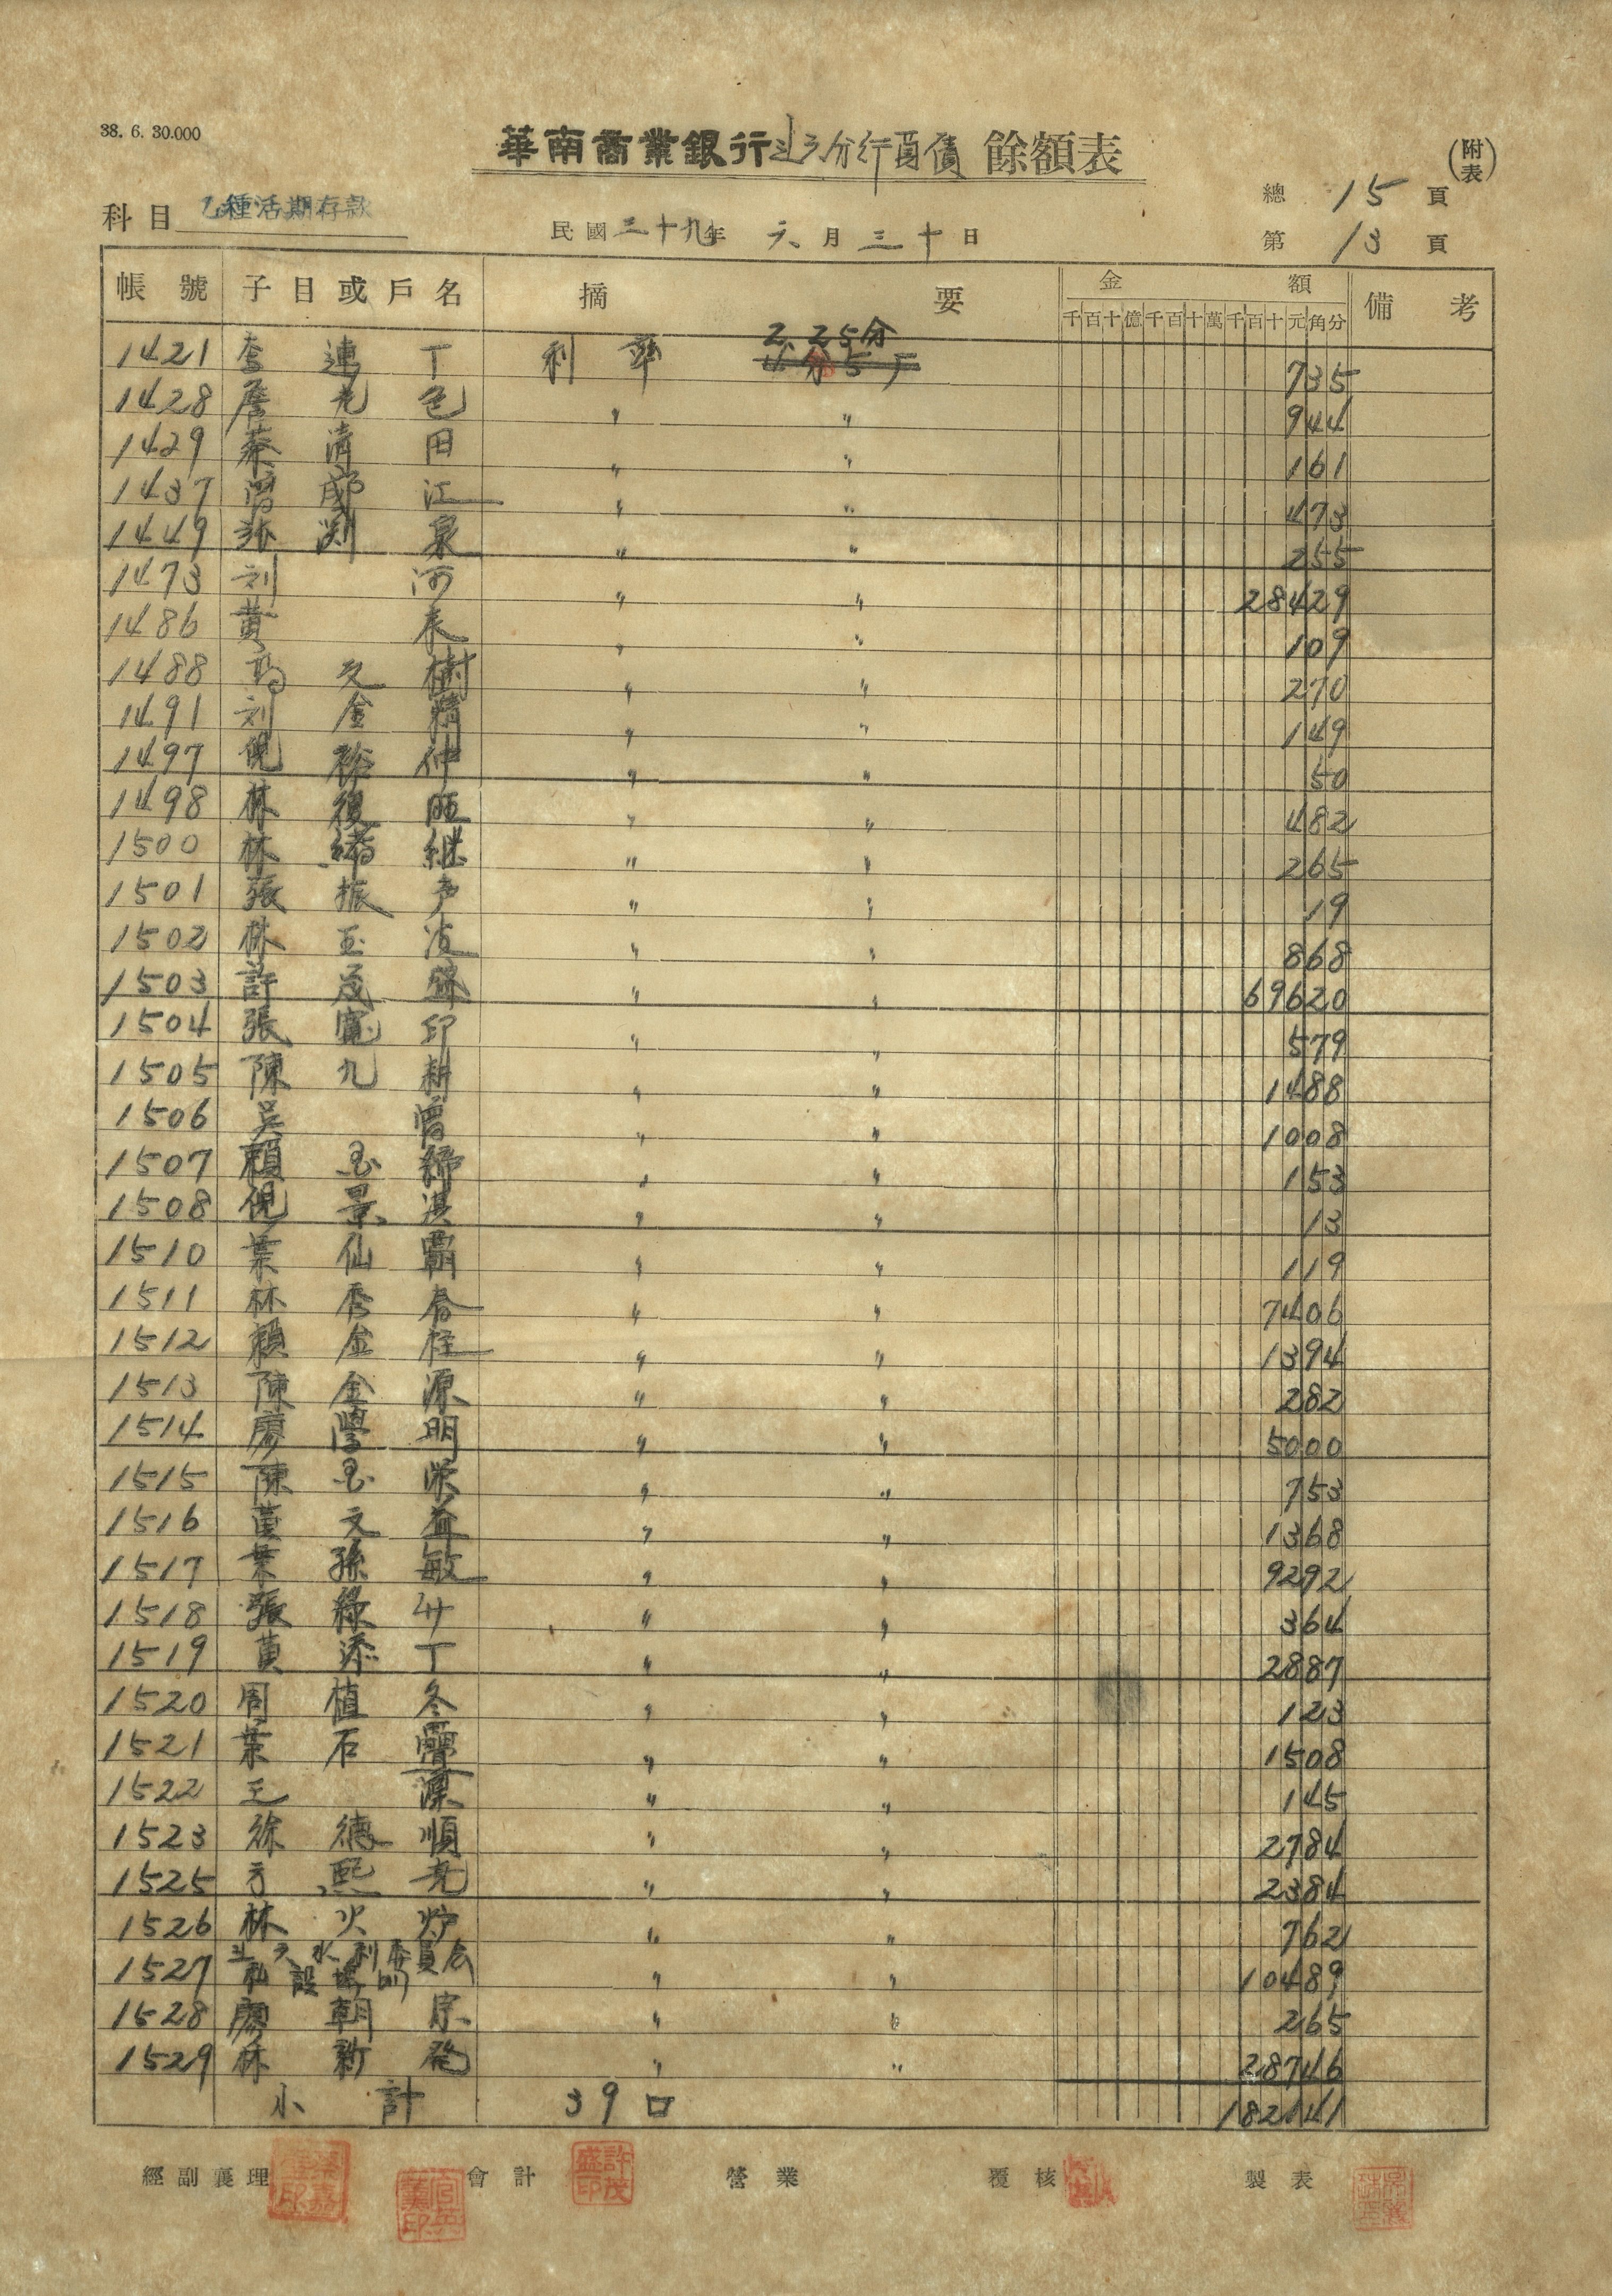 38. 6. 30.000
華南商業銀行斗六分行負債 餘額表
(附表)
科目 乙種活期存款
民國三十九年 六月三十日
總 15 頁
第 13 頁
帳號 子目或戶名 摘要 金額 備考
千百十億千百十萬千百十元角分
2.25分
1421 李連丁 利率 735
1428 詹老色 〃 〃 944
1429 蔡清田 〃 〃 161
1437 江 〃 〃 473
1449 泉 〃 〃 255
1473 刘河 〃 〃 28429
1486 黄 〃 〃 109
1488 樹 〃 〃 270
1491 刘金 〃 〃 149
1497 倪裕仲 〃 〃 50
1498 林復旺 〃 〃 482
1500 林緒継 〃 〃 265
1501 張振声 〃 〃 19
1502 林玉波 〃 〃 868
1503 許茂盛 〃 〃 69620
1504 張寬印 〃 〃 579
1505 陳九耕 〃 〃 1488
1506 吳 〃 〃 1008
1507 賴 〃 〃 153
1508 倪景淇 〃 〃 13
1510 葉仙霸 〃 〃 119
1511 林秀春 〃 〃 7406
1512 賴金柱 〃 〃 1394
1513 陳金源 〃 〃 282
1514 廖學明 〃 〃 5000
1515 陳 〃 〃 753
1516 黄文益 〃 〃 1368
1517 葉孫敏 〃 〃 9292
1518 張綠 〃 〃 364
1519 黄添丁 〃 〃 2887
1520 周植冬 〃 〃 123
1521 葉石 〃 〃 1508
1522 王源 〃 〃 145
1523 徐德順 〃 〃 2784
1525 方熙亮 〃 〃 2384
1526 林火炉 〃 〃 762
斗六水利委員会
1527 〃 〃 10489
1528 廖朝宗 〃 〃 265
1529 林新発 〃 〃 28746
小計 39口 182141
經副襄理 會計 營業 覆核 製表
許茂盛印